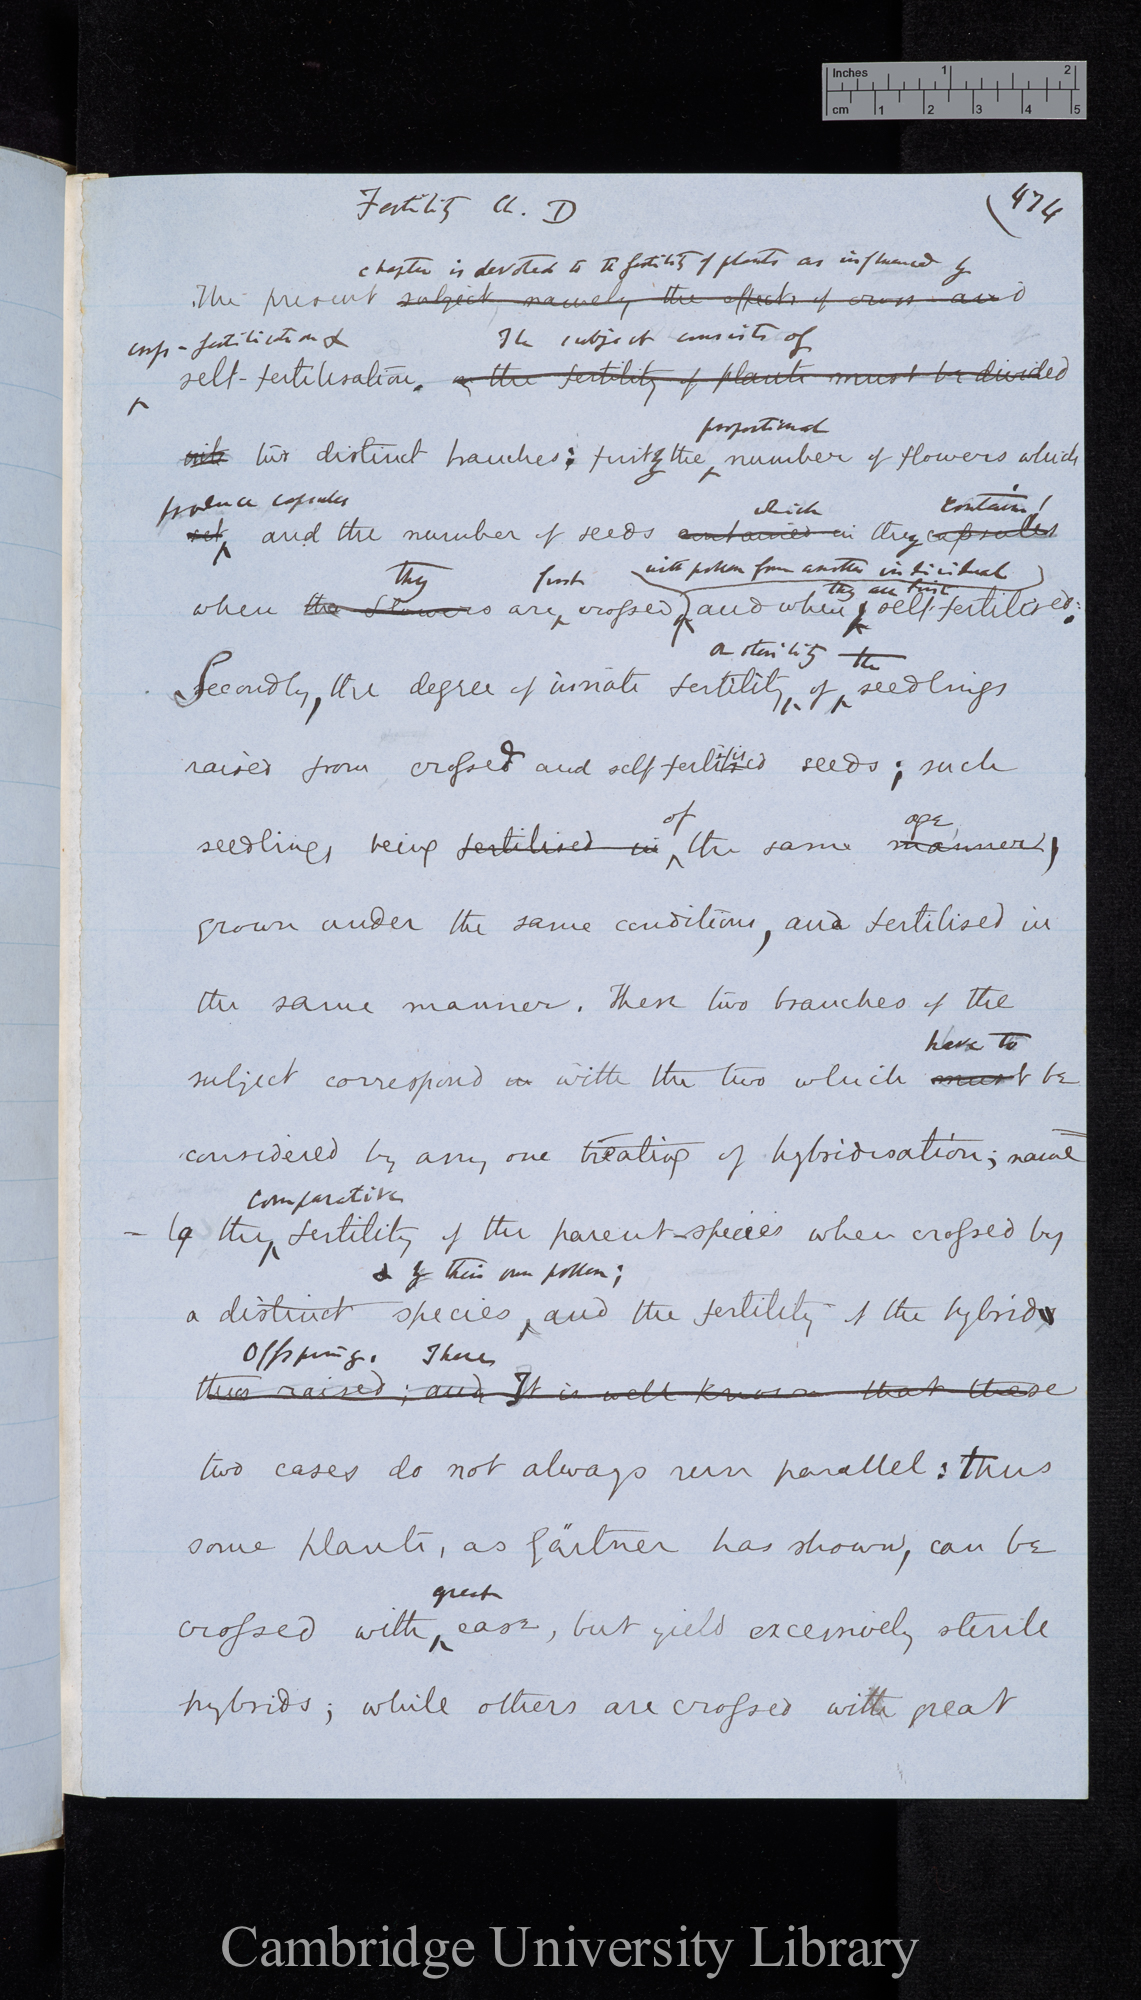 Inches 1 2
cm 1 2 3 4 5
Fertility Ch. D
474
chapter is devoted to the fertility of plants as influenced by
The present subject, namely the effects of cross and
cross-fertilisation &
The subject consists of
self-fertilisation. on the fertility of plants must be divided
proportional
into two distinct branches: firstly the number of flowers which
produce capsules
which
contain
set, and the number of seeds contained in they capsules
with pollen from another individual
they
first
they are first
when the flowers are crossed and when self-fertilised:
or sterility the
Secondly, the degree of innate fertility, of seedlings
raised from crossed and self-fertilised seeds; such
of
age
seedlings being fertilised in the same manner,
grown under the same conditions, and fertilised in
the same manner. These two branches of the
have to
subject correspond with the two which must be
considered by any one treating of hybridisation; name
comparative
- ly the fertility of the parent-species when crossed by
& by their own pollen;
a distinct species, and the fertility of the hybrid
Offspring. These
thus raised; and It is well known that these
two cases do not always run parallel: thus
some plants, as Gärtner has shown, can be
great
crossed with ease, but yield excessively sterile
hybrids; while others are crossed with great
Cambridge University Library